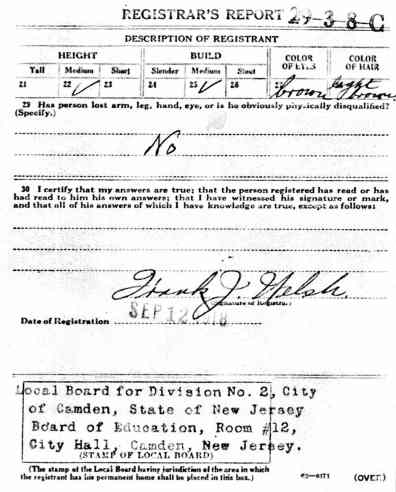 REGISTRAR'S REPORT 29-3-8-C
DESCRIPTION OF REGISTRANT
HEIGHT BUILD COLOR OF EYES COLOR OF HAIR
Tall Medium Short Slender Medium Stout
21 22 ✓ 23 24 25 ✓ 26 27 brown light brown
29 Has person lost arm, leg, hand, eye, or is he obviously physically disqualified?
(Specify.)
No
30 I certify that my answers are true; that the person registered has read or has
had read to him his own answers; that I have witnessed his signature or mark,
and that all of his answers of which I have knowledge are true, except as follows:
Frank J. Welsh.
(Signature of Registrar.)
Date of Registration SEP 12 1918
Local Board for Division No. 2, City
of Camden, State of New Jersey
Board of Education, Room #12,
City Hall, Camden, New Jersey.
(STAMP OF LOCAL BOARD)
(The stamp of the Local Board having jurisdiction of the area in which
the registrant has his permanent home shall be placed in this box.)
(OVER)